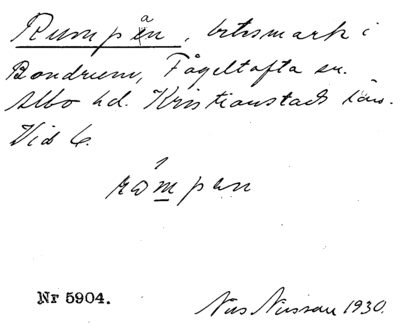 Rumpän, betesmark i
Bondrum, Fågeltofta sn.
Albo hd. Kristianstads län.
Vid 6.
Nr 5904.
Nils Nilsson 1930.